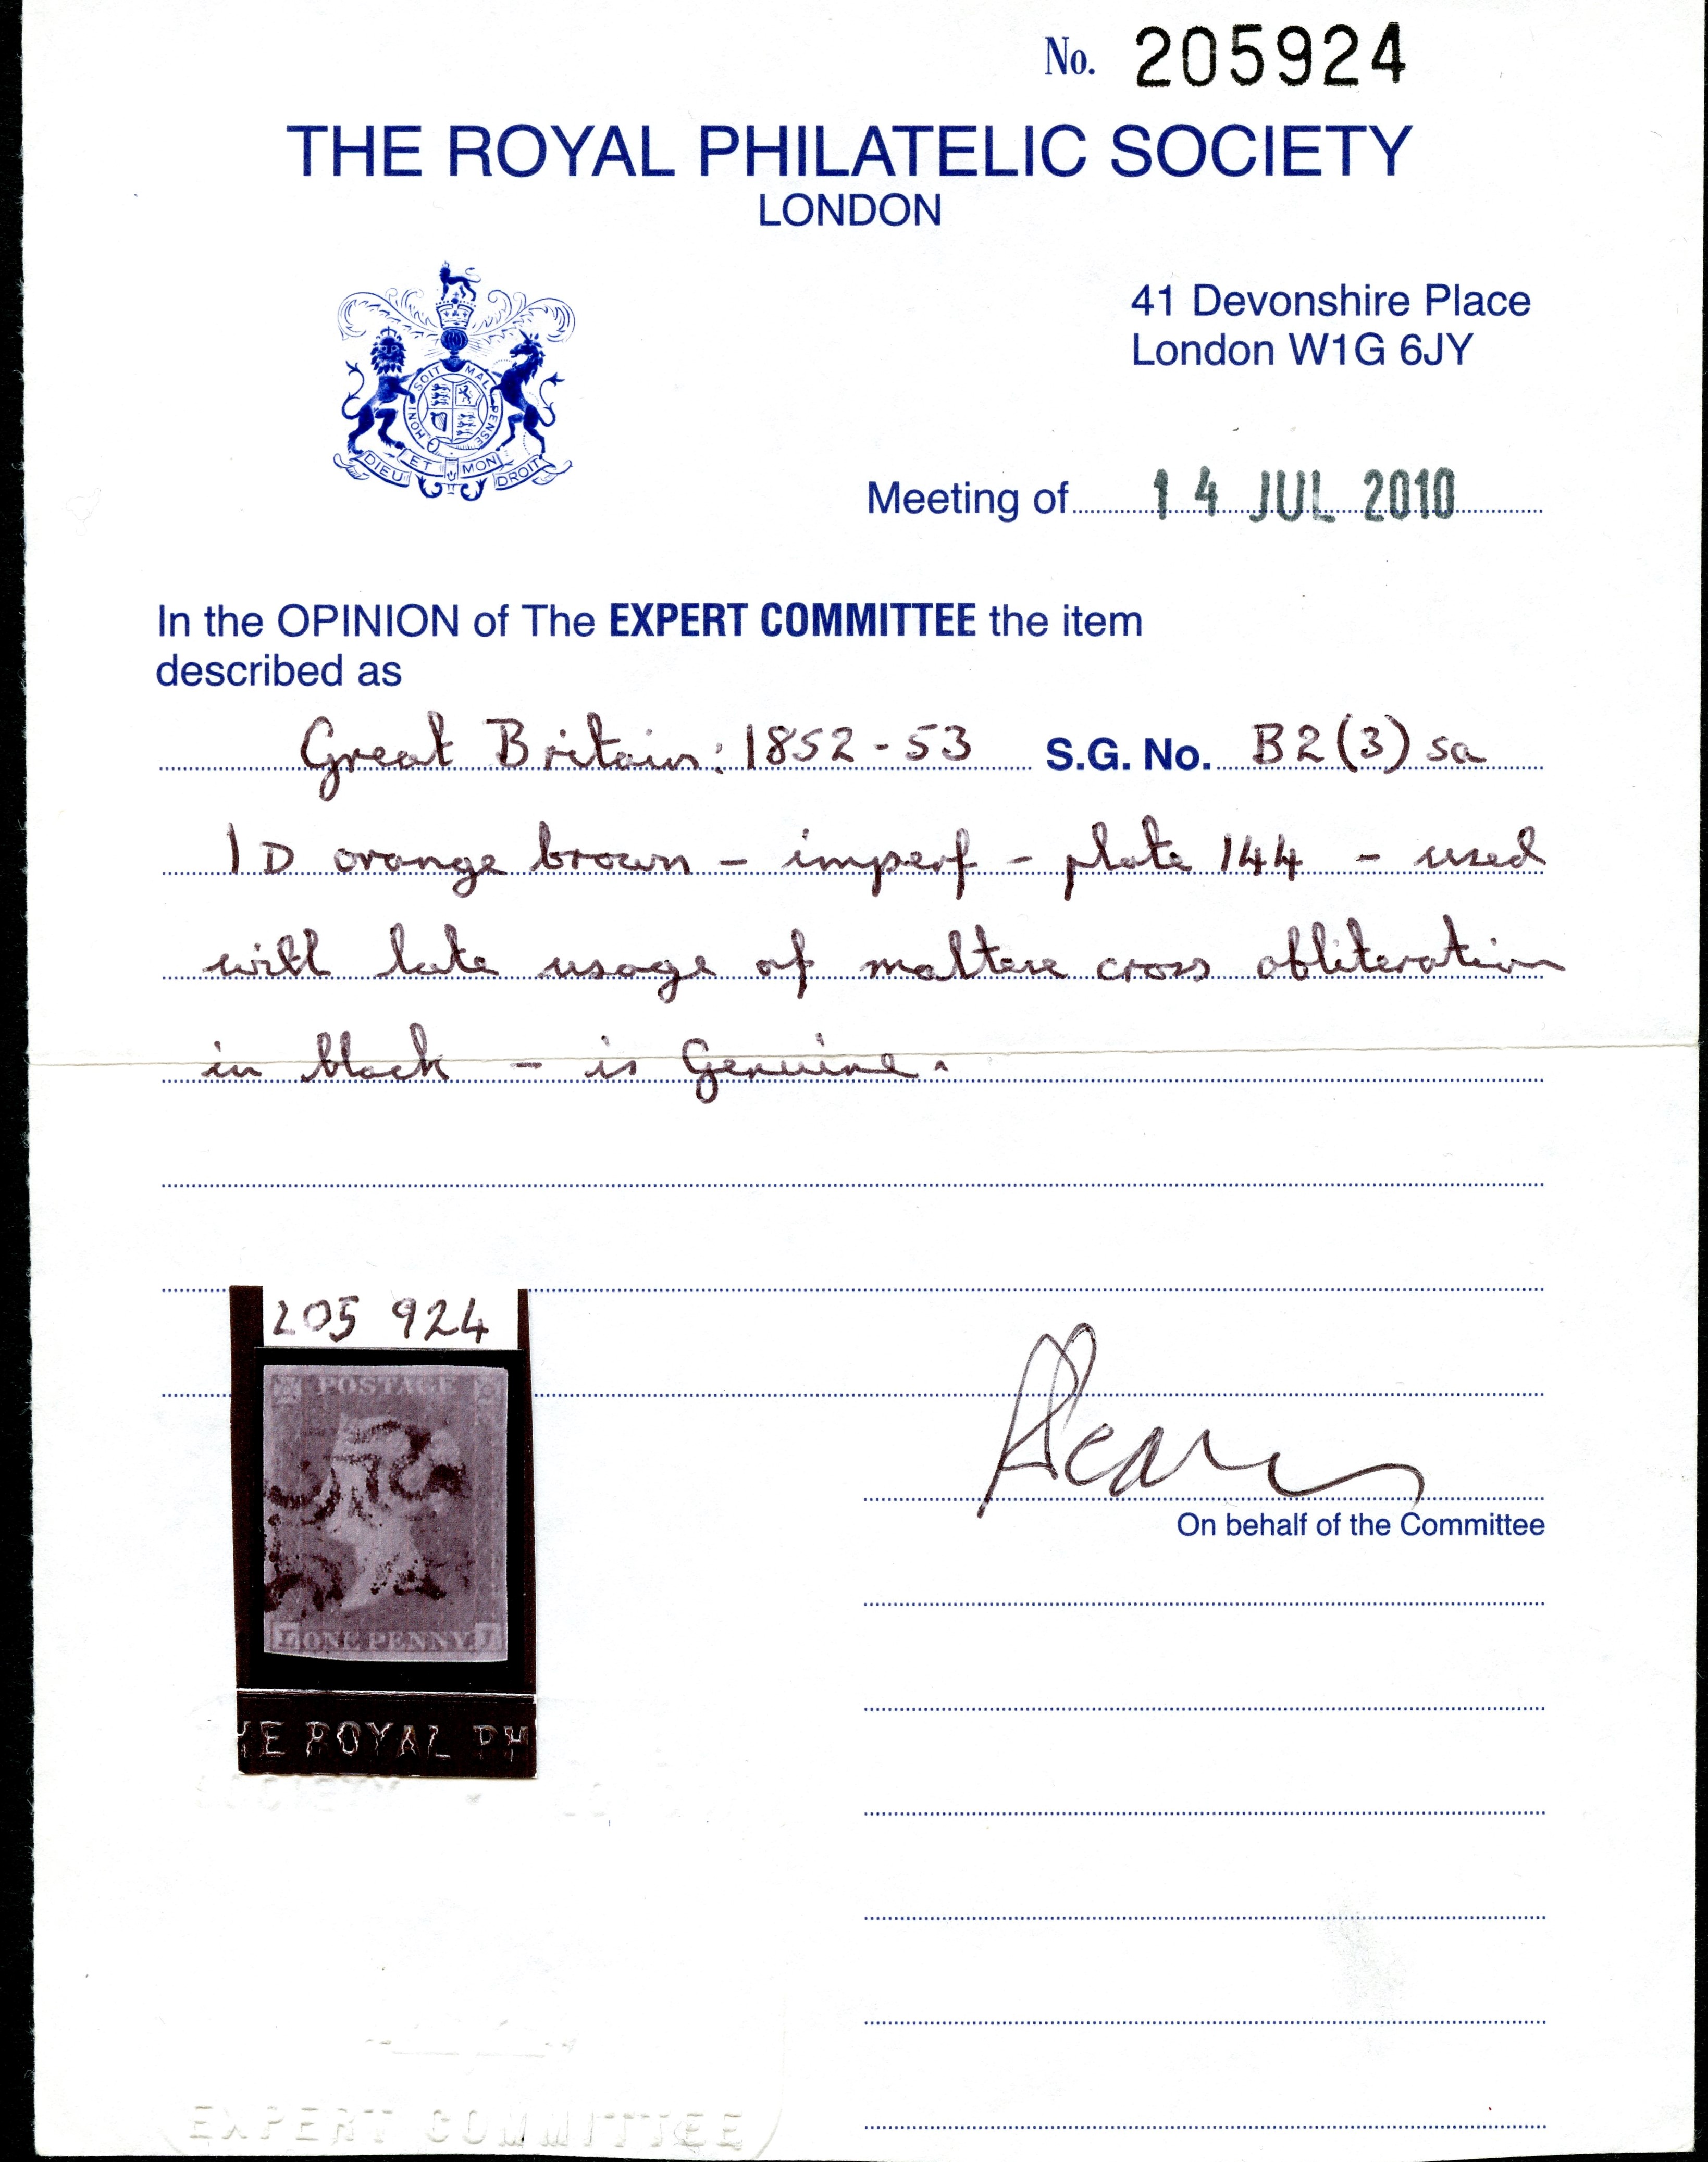 No. 205924
THE ROYAL PHILATELIC SOCIETY
LONDON
41 Devonshire Place
London W1G 6JY
HONI SOIT MAL PENSE
DIEU ET MON DROIT
Meeting of 14 JUL 2010
In the OPINION of The EXPERT COMMITTEE the item
described as
Great Britain: 1852-53 S.G. No. B2(3)sa
1D orange brown - imperf - plate 144 - used
with late usage of maltese cross obliteration
in black - is Genuine.
205 924
POSTAGE
ONE PENNY
HE ROYAL PH
SOCIETY
On behalf of the Committee
EXPERT COMMITTEE